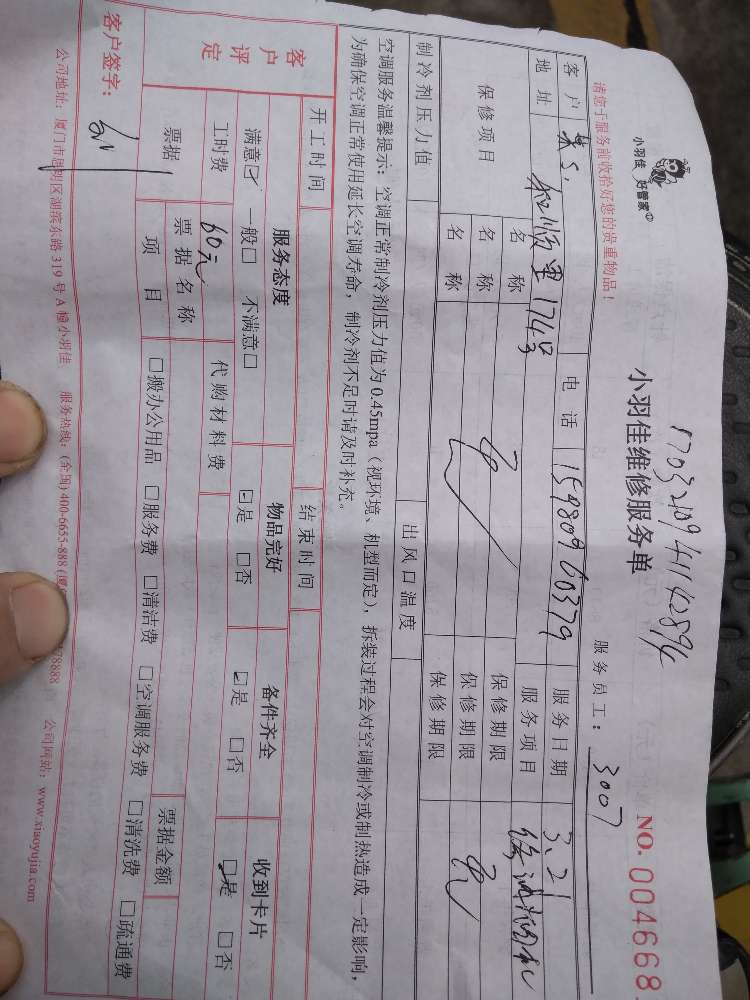 170320941142894
小羽佳 好管家
小羽佳维修服务单
NO. 004668
请您于服务前收拾好您的贵重物品！
服务员工： 3007
客户 电话 15980960379 服务日期 3.21
地址 和顺里174号 服务项目
保修项目 名称 保修期限
名称 保修期限
名称 保修期限
制冷剂压力值 出风口温度
空调服务温馨提示：空调正常制冷剂压力值为0.45mpa（视环境、机型而定），拆装过程会对空调制冷或制热造成一定影响，
为确保空调正常使用延长空调寿命，制冷剂不足时请及时补充。
开工时间 结束时间
客户评定 服务态度 物品完好 备件齐全 收到卡片
满意☑ 一般□ 不满意□ ☑是 □否 ☑是 □否 ☑是 □否
工时费 60元 代购材料费
票据 票据名称 票据金额
项目 □搬办公用品 □服务费 □清洁费 □空调服务费 □清洗费 □疏通费
客户签字：
公司地址：厦门市思明区湖滨东路319号A幢小羽佳 服务热线：(全国) 400-6655-888 78888 公司网站：www.xiaoyujia.com